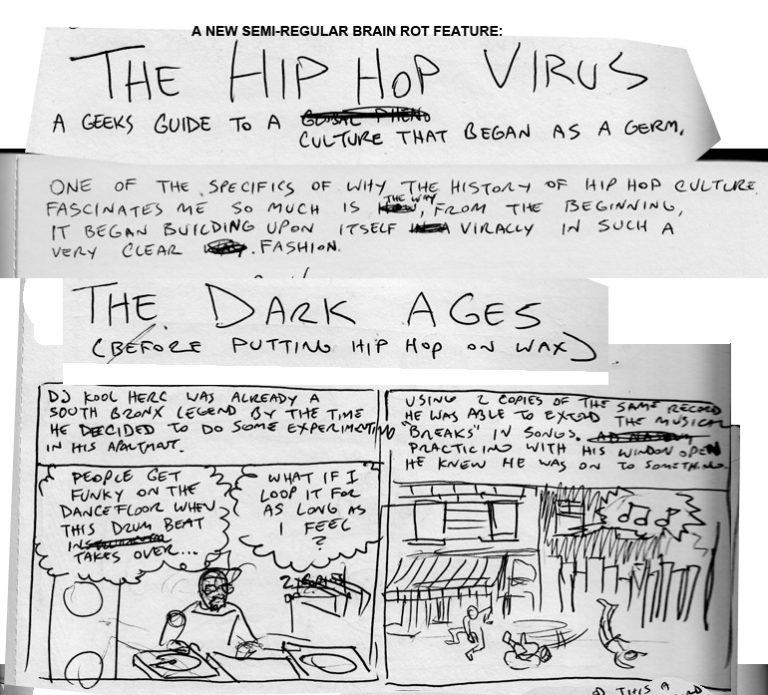 A NEW SEMI-REGULAR BRAIN ROT FEATURE:
THE HIP HOP VIRUS
A GEEKS GUIDE TO A
CULTURE THAT BEGAN AS A GERM.
ONE OF THE SPECIFICS OF WHY THE HISTORY OF HIP HOP CULTURE
FASCINATES ME SO MUCH IS THE WAY, FROM THE BEGINNING,
IT BEGAN BUILDING UPON ITSELF VIRALLY IN SUCH A
VERY CLEAR FASHION.
THE DARK AGES
(BEFORE PUTTING HIP HOP ON WAX)
DJ KOOL HERC WAS ALREADY A
SOUTH BRONX LEGEND BY THE TIME
HE DECIDED TO DO SOME EXPERIMENTING
IN HIS APARTMENT.
PEOPLE GET
FUNKY ON THE
DANCEFLOOR WHEN
THIS DRUM BEAT
TAKES OVER...
WHAT IF I
LOOP IT FOR
AS LONG AS
I FEEL
?
USING 2 COPIES OF THE SAME RECORD
HE WAS ABLE TO EXTEND THE MUSICAL
"BREAKS" IN SONGS.
PRACTICING WITH HIS WINDOW OPEN
HE KNEW HE WAS ON TO SOMETHING.
THIS